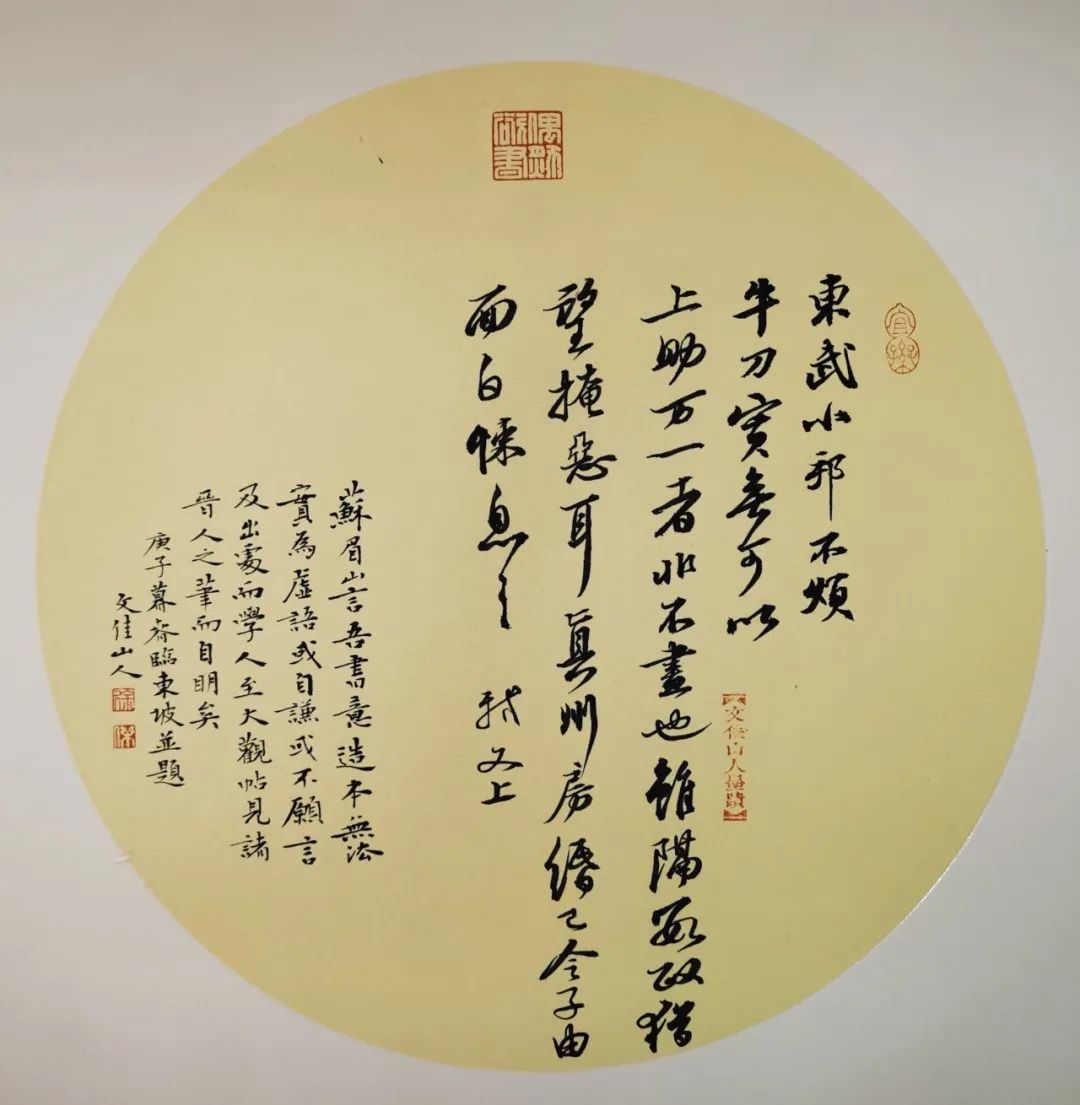 東武小邦不煩
牛刀實無可以
上助万一者非不盡也雖隔數政猶
望掩惡耳真州房緡已令子由
面白悚息〻 軾又上
文佳山人墨蹟
蘇眉山言吾書意造本無法
實為虛語或自謙或不願言
及出處而學人至大觀帖見諸
晉人之筆而自明矣
庚子暮春臨東坡並題
文佳山人